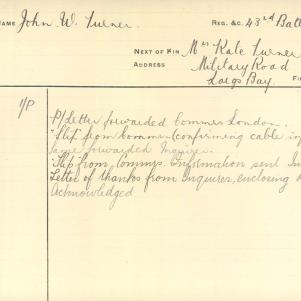 NAME John W. Turner REG. &C. 43rd Batt
NEXT OF KIN Mrs Kate Turner
ADDRESS Military Road
Largs Bay.
I/P
P/Letter forwarded Commrs London.
"Slip" from Commrs (confirming cable
same forwarded Inquirer.
"Slip" from Commrs. Information sent
Letter of thanks from Inquirer, enclosing
Acknowledged